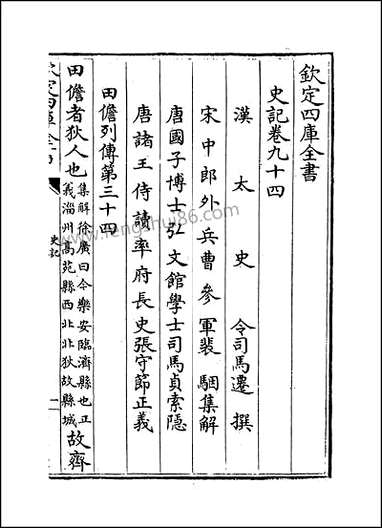 欽定四庫全書
史記卷九十四
漢太史令司馬遷撰
宋中郎外兵曹參軍裴駰集解
唐國子博士弘文館學士司馬貞索隱
唐諸王侍讀率府長史張守節正義
田儋列傳第三十四
田儋者狄人也
集解徐廣曰今樂安臨濟縣也正
義淄州高苑縣西北北狄故縣城
故齊
史記
一